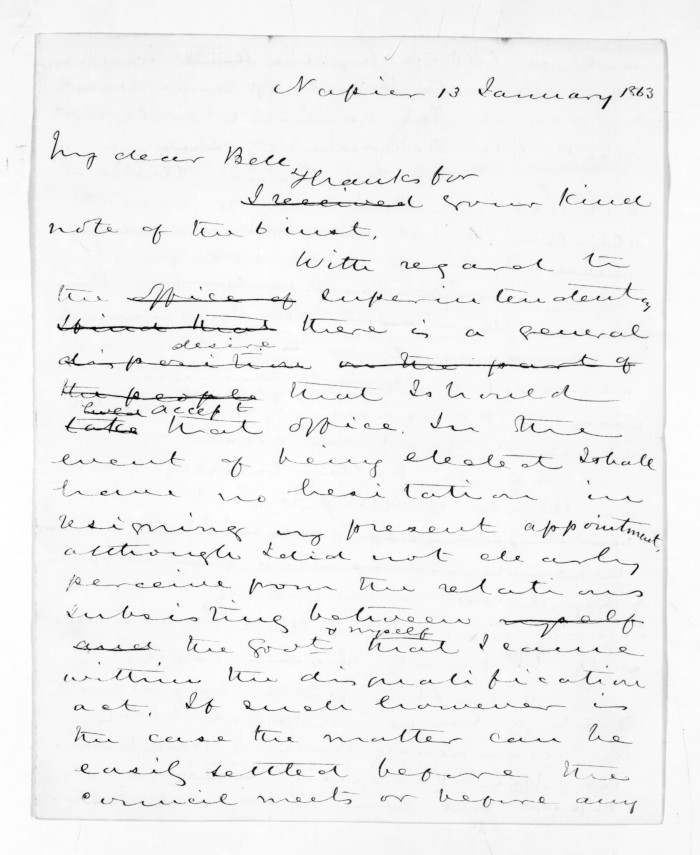 Napier 13 January 1863
My dear Bell
Thanks for
I received your kind
note of the 6 inst.
With regard to
the office of superintendency
I find that there is a general
desire
disposition on the part of
the people that I should
accept
take that office. In the
event of being elected I shall
have no hesitation in
resigning my present appointment,
although I did not clearly
perceive from the relations
subsisting between myself
& myself
and the Govt that I came
within the disqualification
act. If such however is
the case the matter can be
easily settled before the
council meets or before any